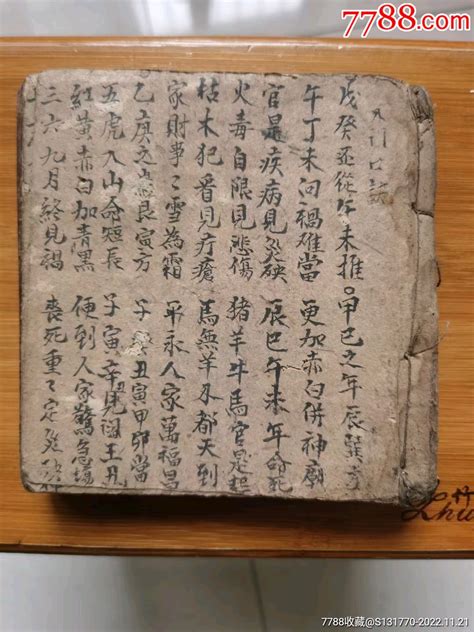 7788.com
戊癸並從午未推 甲巳之年辰巽
午丁未向禍難當 更加赤白併神廟
官是疾病見災殃 辰巳午未年命死
火毒自限見悲傷 猪羊牛馬官是起
枯木犯着見疔瘡 馬無羊 都天到
家財事〻雪為霜 平永人家萬福昌
乙庚之 艮寅方 子癸丑寅甲卯當
五虎入山命短長 子寅辛見
紅黃赤白加青黑 便到人家驚急
三六九月終見禍 喪死重〻定
7788收藏@S131770-2022.11.21